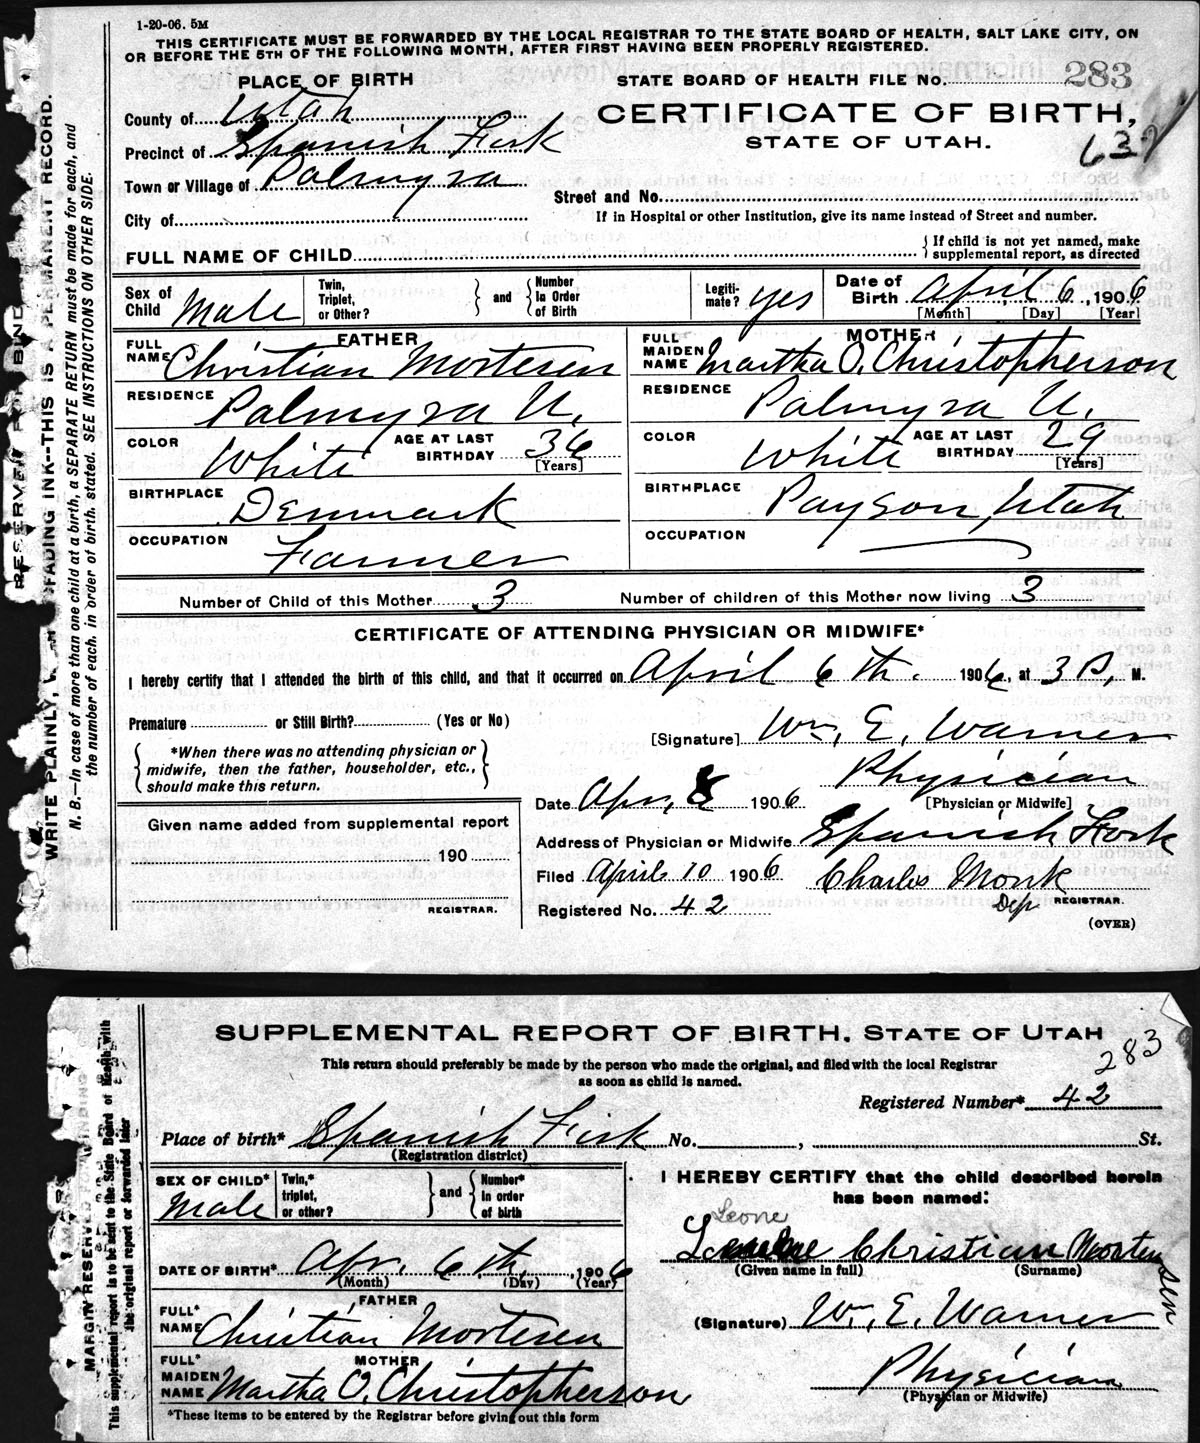 1-20-06. 5M
THIS CERTIFICATE MUST BE FORWARDED BY THE LOCAL REGISTRAR TO THE STATE BOARD OF HEALTH, SALT LAKE CITY, ON
OR BEFORE THE 5TH OF THE FOLLOWING MONTH, AFTER FIRST HAVING BEEN PROPERLY REGISTERED.
PLACE OF BIRTH
STATE BOARD OF HEALTH FILE No. 283
County of Utah
CERTIFICATE OF BIRTH,
STATE OF UTAH.
637
Precinct of Spanish Fork
Town or Village of Palmyra
Street and No.
City of
If in Hospital or other Institution, give its name instead of Street and number.
FULL NAME OF CHILD
If child is not yet named, make
supplemental report, as directed
Sex of Child Male
Twin, Triplet, or Other?
and
Number In Order of Birth
Legiti-mate? yes
Date of Birth April 6, 1906
[Month] [Day] [Year]
FATHER
FULL NAME Christian Mortesen
RESIDENCE Palmyra U.
COLOR White
AGE AT LAST BIRTHDAY 36 [Years]
BIRTHPLACE Denmark
OCCUPATION Farmer
MOTHER
FULL MAIDEN NAME Martha O. Christopherson
RESIDENCE Palmyra U.
COLOR White
AGE AT LAST BIRTHDAY 29 [Years]
BIRTHPLACE Payson, Utah
OCCUPATION
Number of Child of this Mother 3
Number of children of this Mother now living 3
CERTIFICATE OF ATTENDING PHYSICIAN OR MIDWIFE*
I hereby certify that I attended the birth of this child, and that it occurred on April 6th. 1906, at 3 P, M.
Premature or Still Birth? (Yes or No)
*When there was no attending physician or
midwife, then the father, householder, etc.,
should make this return.
[Signature] Wm. E. Warner
Physician
[Physician or Midwife]
Date Apr, 8 1906
Given name added from supplemental report
190
REGISTRAR.
Address of Physician or Midwife Spanish Fork
Filed April 10 1906
Charles Monk
Dep REGISTRAR.
Registered No. 42
(OVER)
RESERVED FOR BIND
WRITE PLAINLY, FADING INK--THIS IS A PERMANENT RECORD.
N. B.—In case of more than one child at a birth, a SEPARATE RETURN must be made for each, and
the number of each, in order of birth, stated. SEE INSTRUCTIONS ON OTHER SIDE.
SUPPLEMENTAL REPORT OF BIRTH, STATE OF UTAH
283
This return should preferably be made by the person who made the original, and filed with the local Registrar
as soon as child is named.
Registered Number* 42
Place of birth* Spanish Fork No. , St.
(Registration district)
SEX OF CHILD* Male
Twin,* triplet, or other?
and
Number* in order of birth
DATE OF BIRTH* Apr. 6th, 1906
(Month) (Day) (Year)
FATHER
FULL* NAME Christian Mortesen
MOTHER
FULL* MAIDEN NAME Martha O. Christopherson
*These items to be entered by the Registrar before giving out this form
I HEREBY CERTIFY that the child described herein
has been named:
Leone
Christian Mortensen
(Given name in full) (Surname)
(Signature) Wm. E. Warner
Physician
(Physician or Midwife)
MARGIN RESERVED BINDING
This supplemental report is to be sent to the State Board of Health with
the original report or forwarded later